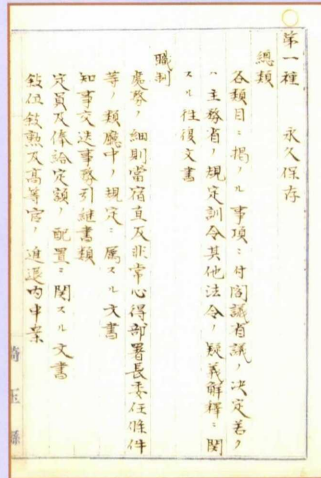 第一種 永久保存
總類
各類目ニ掲ノル事項ニ付閣議省議ノ決定若ク
ハ主務省ノ規定訓令其他法令ノ疑義解釋ニ関
スル往復文書
職制
處務ノ細則當宿直及非常心得部署長委任條件
等ノ類廳中ノ規定ニ属スル文書
知事交迭事務引継書類
定員及俸給定額ノ配置ニ関スル文書
敍位敍勲及高等官ノ進退内申案
埼玉縣